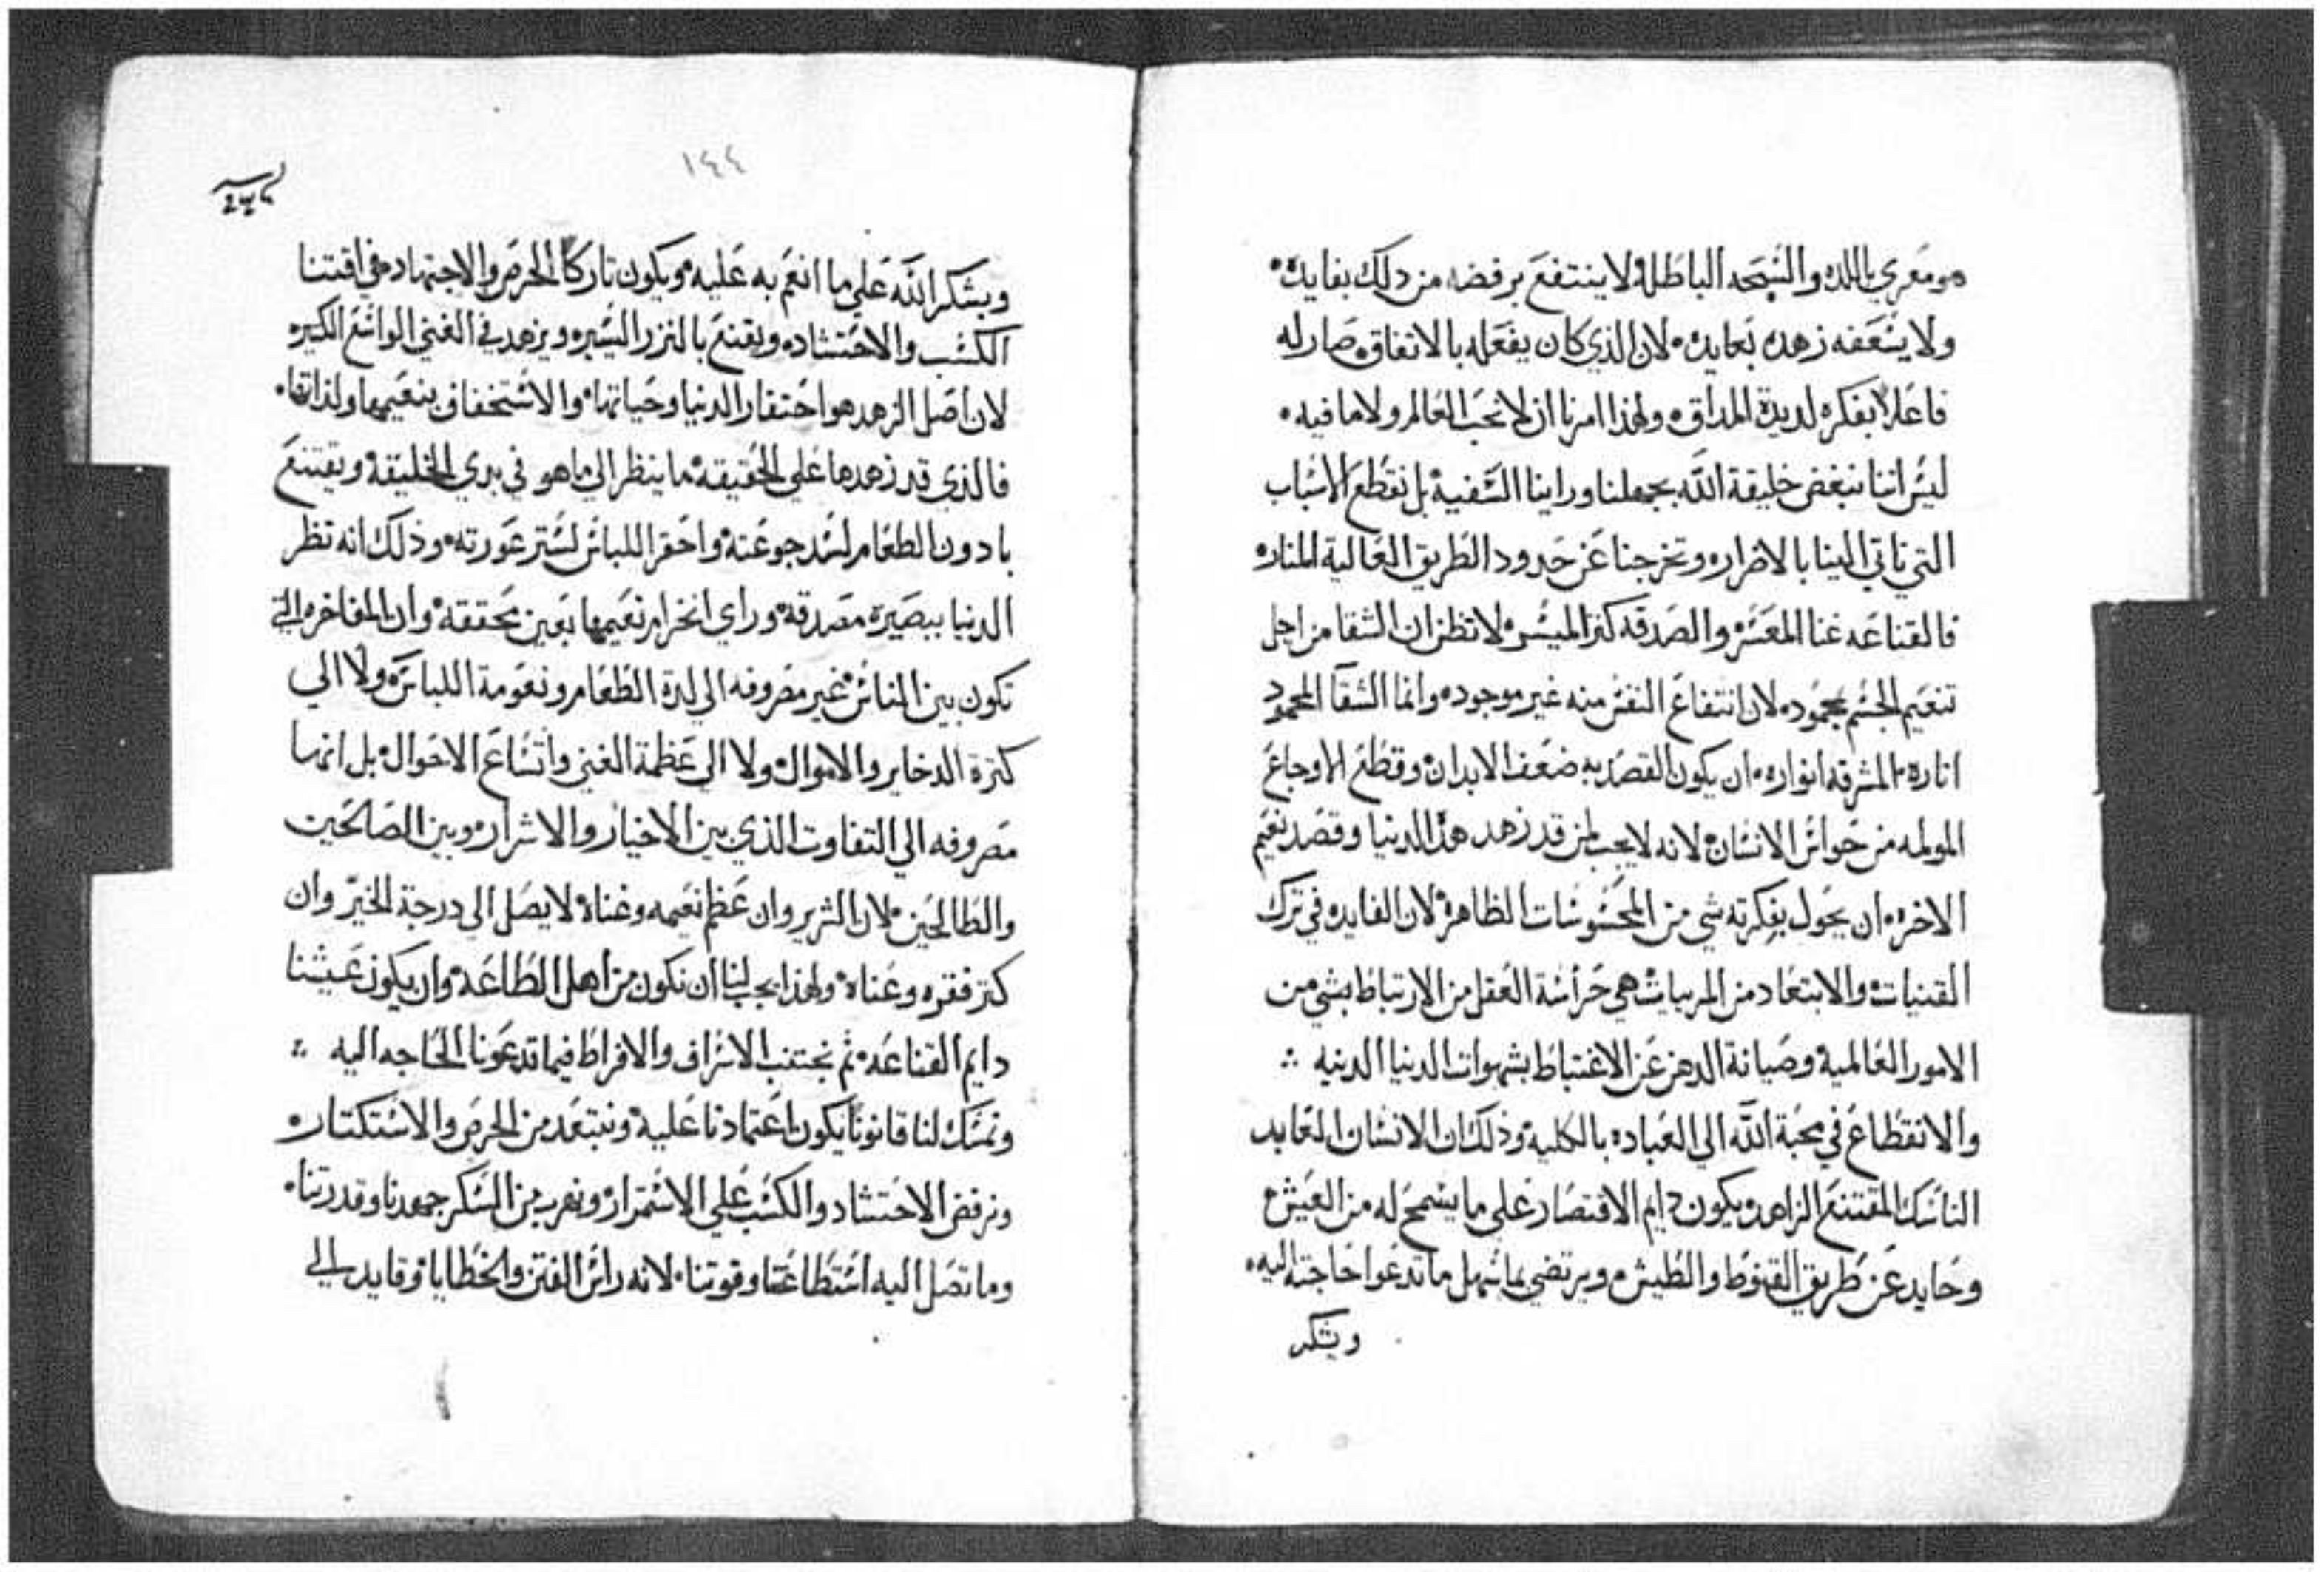 هو مغري باللده والسبحه الباطلة لا ينتفع برفضه من دلك بفايدة
ولا يسعفه زهده بعايده لان الذي كان يفعله بالاتفاق صار له
فاعلا بفكره لديدة المداق ولهذا امرنا ان لا نحب العالم ولا ما فيه
ليس اننا نبغض خليقة الله بجهلنا وراينا السفيه بل نقطع الاسباب
التي تاتي الينا بالاضراره وتخرجنا عن حدود الطريق العالية المناره
فالقناعه غنا المعسر والصدقه كنز الميسر لا تظن ان الشقا من اجل
تنعيم الجسم محموده لان انتفاع النفس منه غير موجوده وانما الشقا المحمود
اثاره المشرقه انواره ان يكون القصد به ضعف الابدان وقطع الاوجاع
المولمه من حواس الانسان لانه لا يجب لمن قد زهد هذه الدنيا وقصد نعيم
الاخره ان يحول بفكرته شي من المحسوسات الظاهرة لان الفايده في ترك
القنيات والابتعاد من المرييات هي حراسة العقل من الارتباط بشي من
الامور العالمية وصيانة الدهن عن الاغتباط بشهوات الدنيا الدنيه
والانقطاع في محبة الله الي العباده بالكليه وذلك ان الانسان العابد
الناسك المقتنع الزاهد يكون دايم الاقتصار علي ما يسمح له من العيش
وحايد عن طريق القنوط والطيش ويرتضي بما سهل ما تدعوا حاجته اليه
ويشكر
١٤٤
ويشكر الله علي ما انعم به عليه ويكون تاركا الحرص والاجتهاد في اقتنا
الكسب والاحتشاده ويقتنع بالنزر اليسيره ويزهد في الغني الواسع الكثيره
لان اصل الزهد هو احتقار الدنيا وحياتها والاستخفاف بنعيمها ولذاتها
فالذي قد زهدها علي الحقيقه ما ينظر الي ما هو في يدي الخليقة ويقتنع
بادون الطعام لسد جوعته واحقر اللباس لستر عورته وذلك انه نظر
الدنيا ببصيرة مصدقة وراي انخرام نعيمها بعين محققة وان المفاخره التي
تكون بين الناس غير مصروفه الي لدة الطعام ونعومة اللباس ولا الي
كثرة الدخاير والاموال ولا الي عظمة الغني واتساع الاحوال بل انها
مصروفه الي التفاوت الذي بين الاخيار والاشراره وبين الصالحين
والطالحين لان الشرير وان عظم نعيمه وغناه لا يصل الي درجة الخير وان
كثر فقره وعناه ولهذا يجب لنا ان نكون من اهل الطاعه وان يكون عيشنا
دايم القناعه ثم نجتنب الاسراف والافراط فيما تدعونا الحاجه اليه
ونمسك لنا قانونا يكون اعتمادنا عليه ونبتعد من الحرص والاستكتاره
ونرفض الاحتشاد والكسب علي الاستمرار ونهرب من السكر جهدنا وقدرتنا
وما تصل اليه استطاعتنا وقوتنا لانه راس الفتن والخطايا وقايد الي